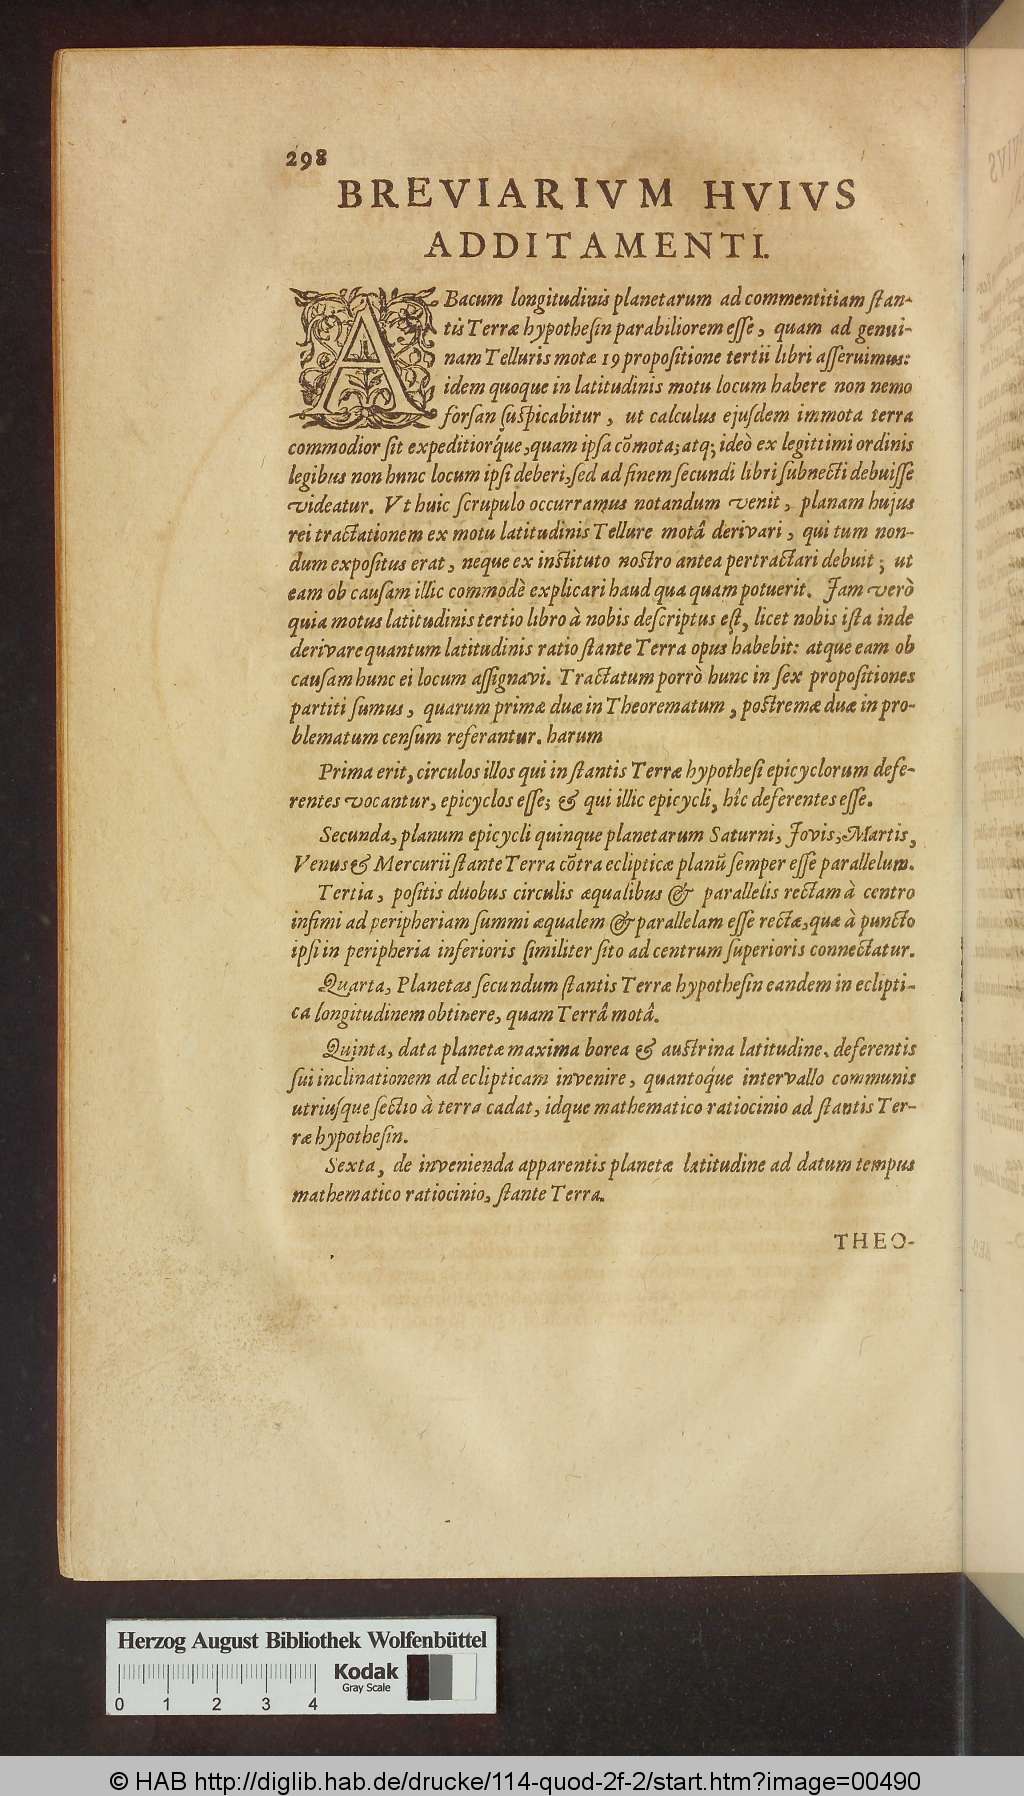 298
BREVIARIVM HVIVS
ADDITAMENTI.
ABacum longitudinis planetarum ad commentitiam ſtan-
tis Terræ hypotheſin parabiliorem eſſe, quam ad genui-
nam Telluris motæ 19 propoſitione tertii libri aſſeruimus:
idem quoque in latitudinis motu locum habere non nemo
forſan ſuſpicabitur, ut calculus ejuſdem immota terra
commodior ſit expeditiorq́ue, quam ipſa cõmota; atq; ideò ex legittimi ordinis
legibus non hunc locum ipſi deberi, ſed ad finem ſecundi libri ſubnecti debuiſſe
videatur. Vt huic ſcrupulo occurramus notandum venit, planam hujus
rei tractationem ex motu latitudinis Tellure motâ derivari, qui tum non-
dum expoſitus erat, neque ex inſtituto noſtro antea pertractari debuit; ut
eam ob cauſam illic commodè explicari haud qua quam potuerit. Jam verò
quia motus latitudinis tertio libro à nobis deſcriptus eſt, licet nobis iſta inde
derivare quantum latitudinis ratio ſtante Terra opus habebit: atque eam ob
cauſam hunc ei locum aſſignavi. Tractatum porrò hunc in ſex propoſitiones
partiti ſumus, quarum primæ duæ in Theorematum, poſtremæ duæ in pro-
blematum cenſum referantur. harum
Prima erit, circulos illos qui in ſtantis Terræ hypotheſi epicyclorum defe-
rentes vocantur, epicyclos eſſe; & qui illic epicycli, hîc deferentes eſſe.
Secunda, planum epicycli quinque planetarum Saturni, Jovis, Martis,
Venus & Mercurii ſtante Terra cõtra eclipticæ planũ ſemper eſſe parallelum.
Tertia, poſitis duobus circulis æqualibus & parallelis rectam à centro
infimi ad peripheriam ſummi æqualem & parallelam eſſe rectæ, quæ à puncto
ipſi in peripheria inferioris ſimiliter ſito ad centrum ſuperioris connectatur.
Quarta, Planetas ſecundum ſtantis Terræ hypotheſin eandem in eclipti-
ca longitudinem obtinere, quam Terrâ motâ.
Quinta, data planetæ maxima borea & auſtrina latitudine, deferentis
ſui inclinationem ad eclipticam invenire, quantoq́ue intervallo communis
utriuſque ſectio à terra cadat, idque mathematico ratiocinio ad ſtantis Ter-
ræ hypotheſin.
Sexta, de invenienda apparentis planetæ latitudine ad datum tempus
mathematico ratiocinio, ſtante Terra.
THEO-
Herzog August Bibliothek Wolfenbüttel
Kodak
Gray Scale
0 1 2 3 4
© HAB http://diglib.hab.de/drucke/114-quod-2f-2/start.htm?image=00490